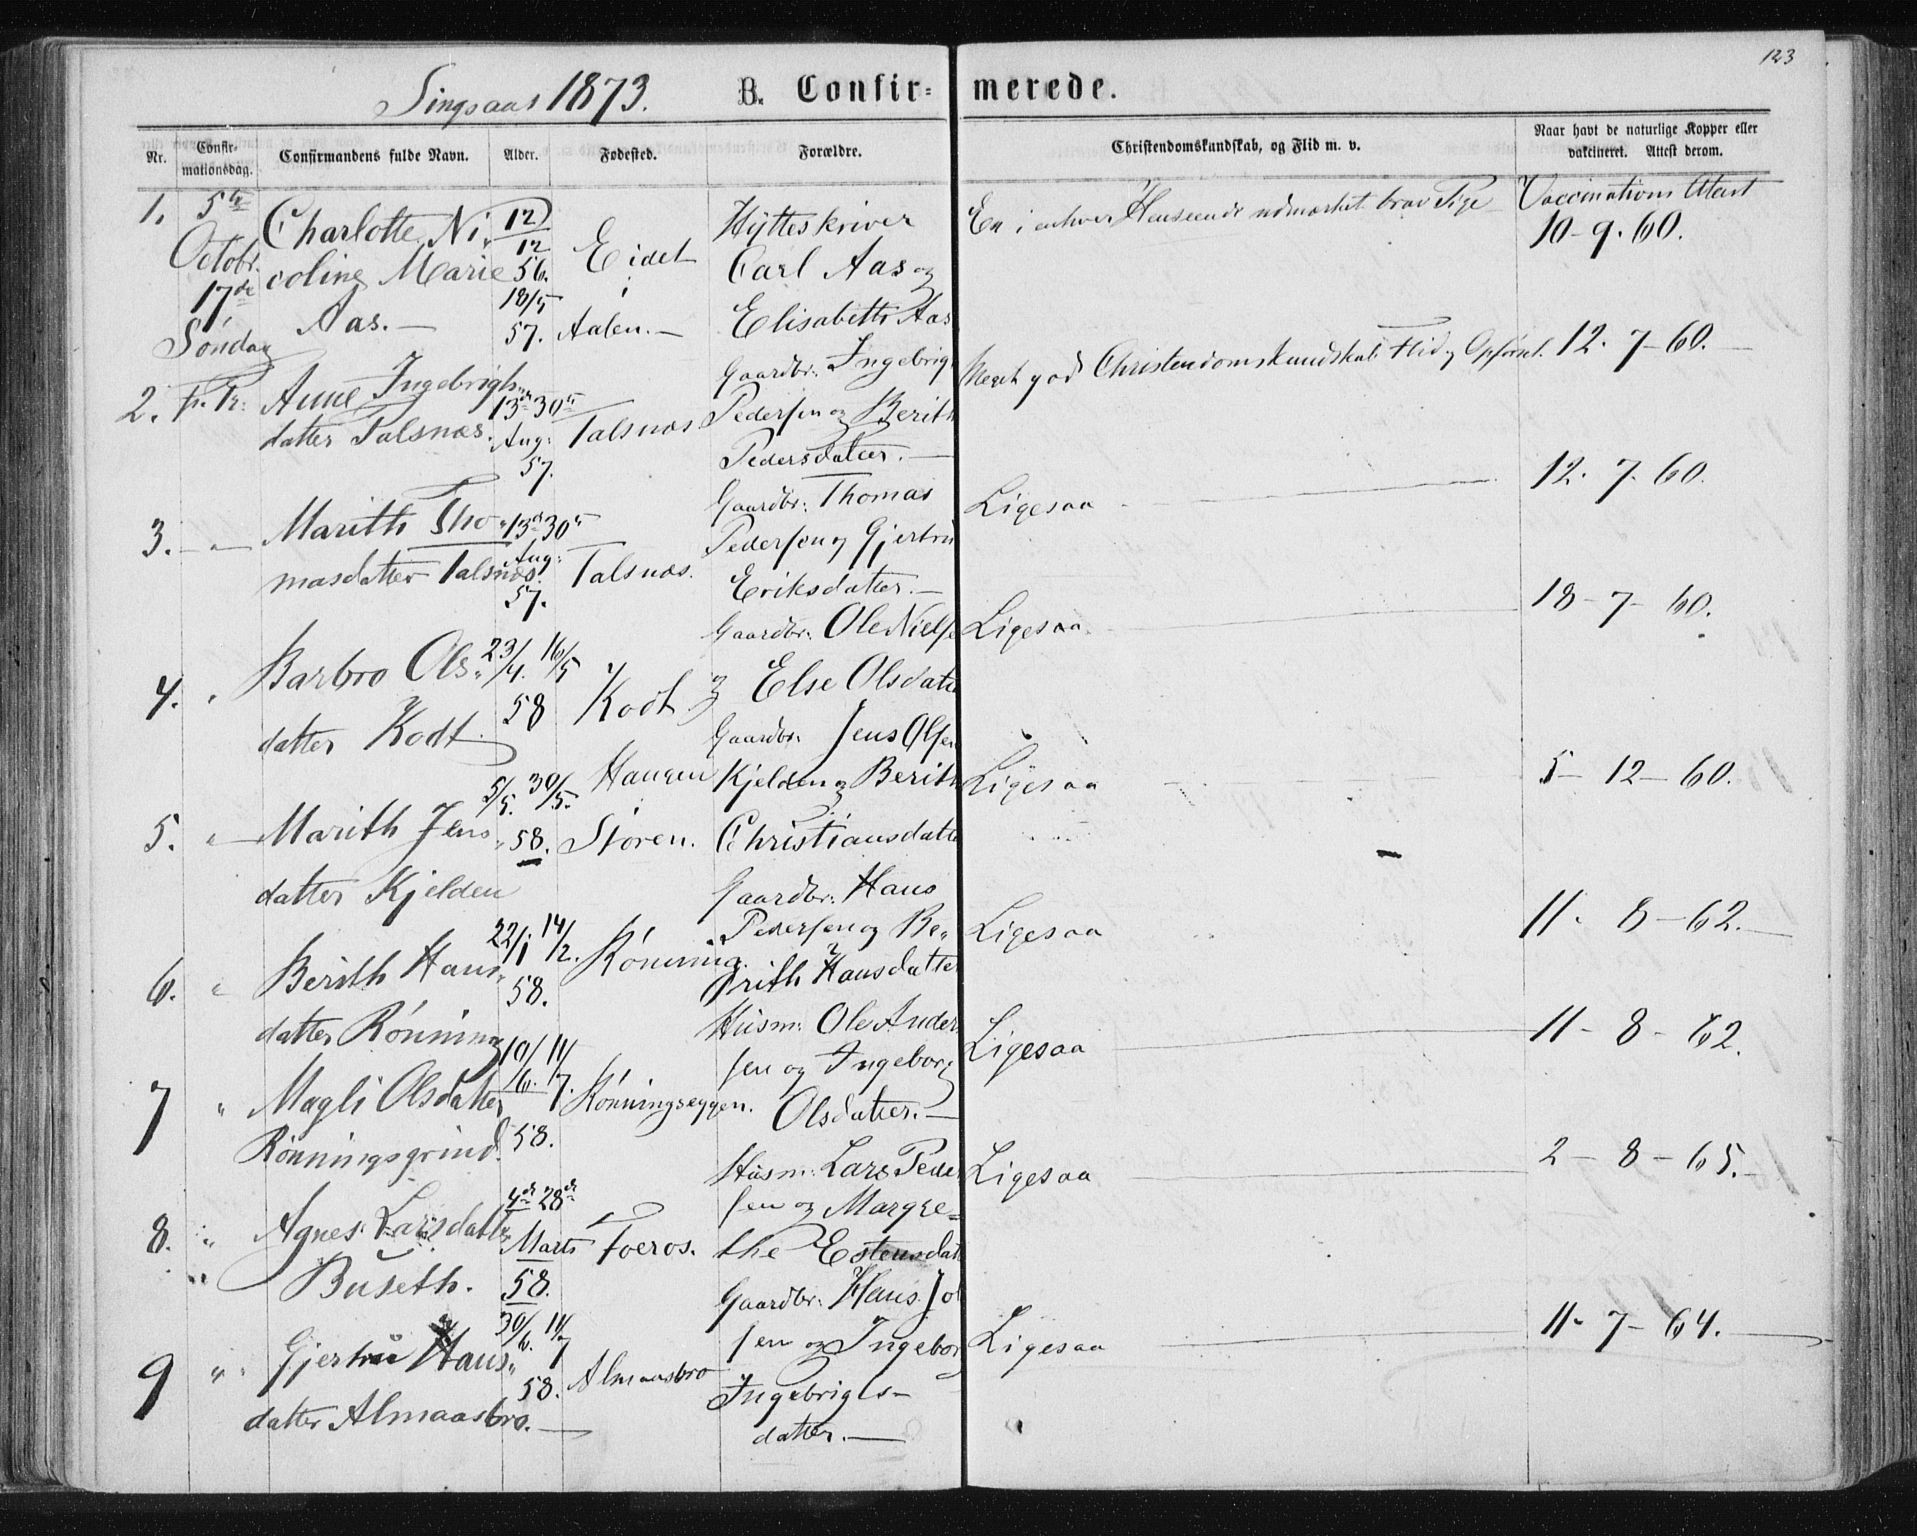 123
Singsaas 1873. B. Confirmerede.
Nr. Confirmationsdag. Confirmandens fulde Navn. Alder. Fødested. Forældre. Christendomskundskab, og Flid m. v. Naar havt de naturlige Kopper eller vakcineret. Attest derom.
1. 5te Octobr. 17de Søndag Charlotte Nicoline Marie Aas.— 12/12 56. 18/5 57. Eidet i Aalen.— Hytteskriver Carl Aas og Elisabeth Aas En i enhver Henseende udmærket brav Pige Vaccinations Attest 10-9.60.
2. Fr. Tr: Anne Ingebrigtsdatter Talsnæs. 13de 30te Aug: 57. Talsnæs Gaardbr: Ingebrigt Pedersen og Berith Pedersdatter.— Meget god Christendomskundskab Flid og Opførsel. 12. 7-60.
3. — " — Marith Thomasdatter Talsnæs. 13de 30te Aug: 57. Talsnæs. Gaardbr: Thomas Pedersen og Gjertru Eriksdatter.— Ligesaa 12. 7. 60.
4. " Barbro Olsdatter Kodt 23/4. 16/5 58 Kodt Gaardbr: Ole Nielse og Else Olsdatte Ligesaa 18-7-60.
5. " Marith Jensdatter Kjelden 5/5. 30/5. 58. Haugen Støren. Gaardbr: Jens Olsen Kjelden og Berith Christiansdatte Ligesaa 5-12-60.
6. " Berith Hansdatter Rønning 22/1 14/2. 58. Rønning. Gaardbr: Hans Pedersen og Berith Hansdatter Ligesaa 11. 8-62.
7 " Magli Olsdatter Rønningsgrind. 10/6. 11/7. 58. Rønningseggen. Husm: Ole Andersen og Ingeborg Olsdatter.— Ligesaa 11-8-62.
8. " Agnes Larsdatter Buseth. 4de 28de Marts 58. Foeros. Husm: Lars Pedersen og Margrethe Estensdat Ligesaa 2-8-65.
9 " Gjertru Hansdatter Almaasbro.— 30/6. 11/7 58. Almaasbro Gaardbr: Hans Johsen og Ingebor Ingebrigtsdatter.— Ligesaa 11-7-64.